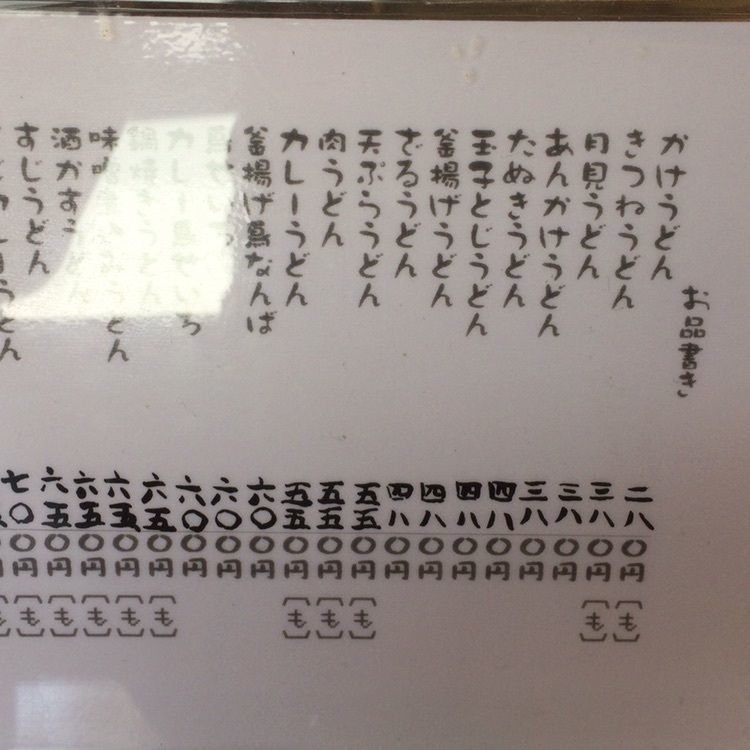 お品書き
かけうどん 二八〇円
[も]
きつねうどん 三八〇円
[も]
月見うどん 三八〇円
あんかけうどん 三八〇円
たぬきうどん 四八〇円
玉子とじうどん 四八〇円
釜揚げうどん 四八〇円
ざるうどん 四八〇円
天ぷらうどん 五五〇円
[も]
肉うどん 五五〇円
[も]
カレーうどん 五五〇円
[も]
釜揚げ鳥なんば 六〇〇円
鳥せいろ 六〇〇円
カレー鳥せいろ 六〇〇円
鍋焼きうどん 六五〇円
[も]
味噌煮込みうどん 六五〇円
[も]
酒かすうどん 六五〇円
[も]
すじうどん 六五〇円
[も]
カレーうどん 七〇〇円
[も]